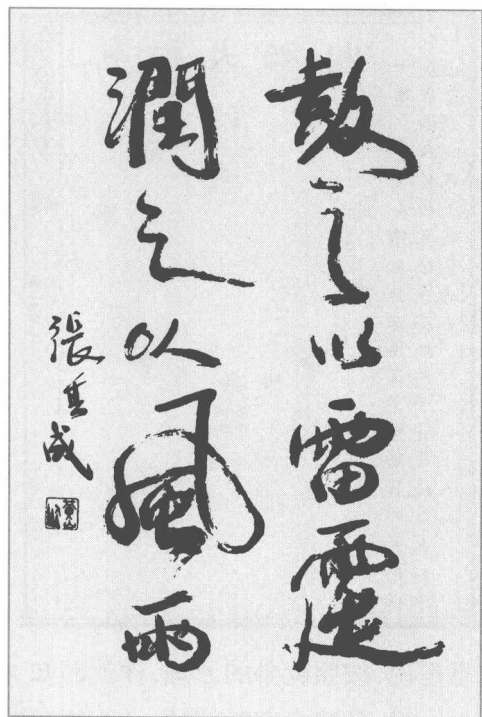 鼓之以雷霆
潤之以風雨
張其成